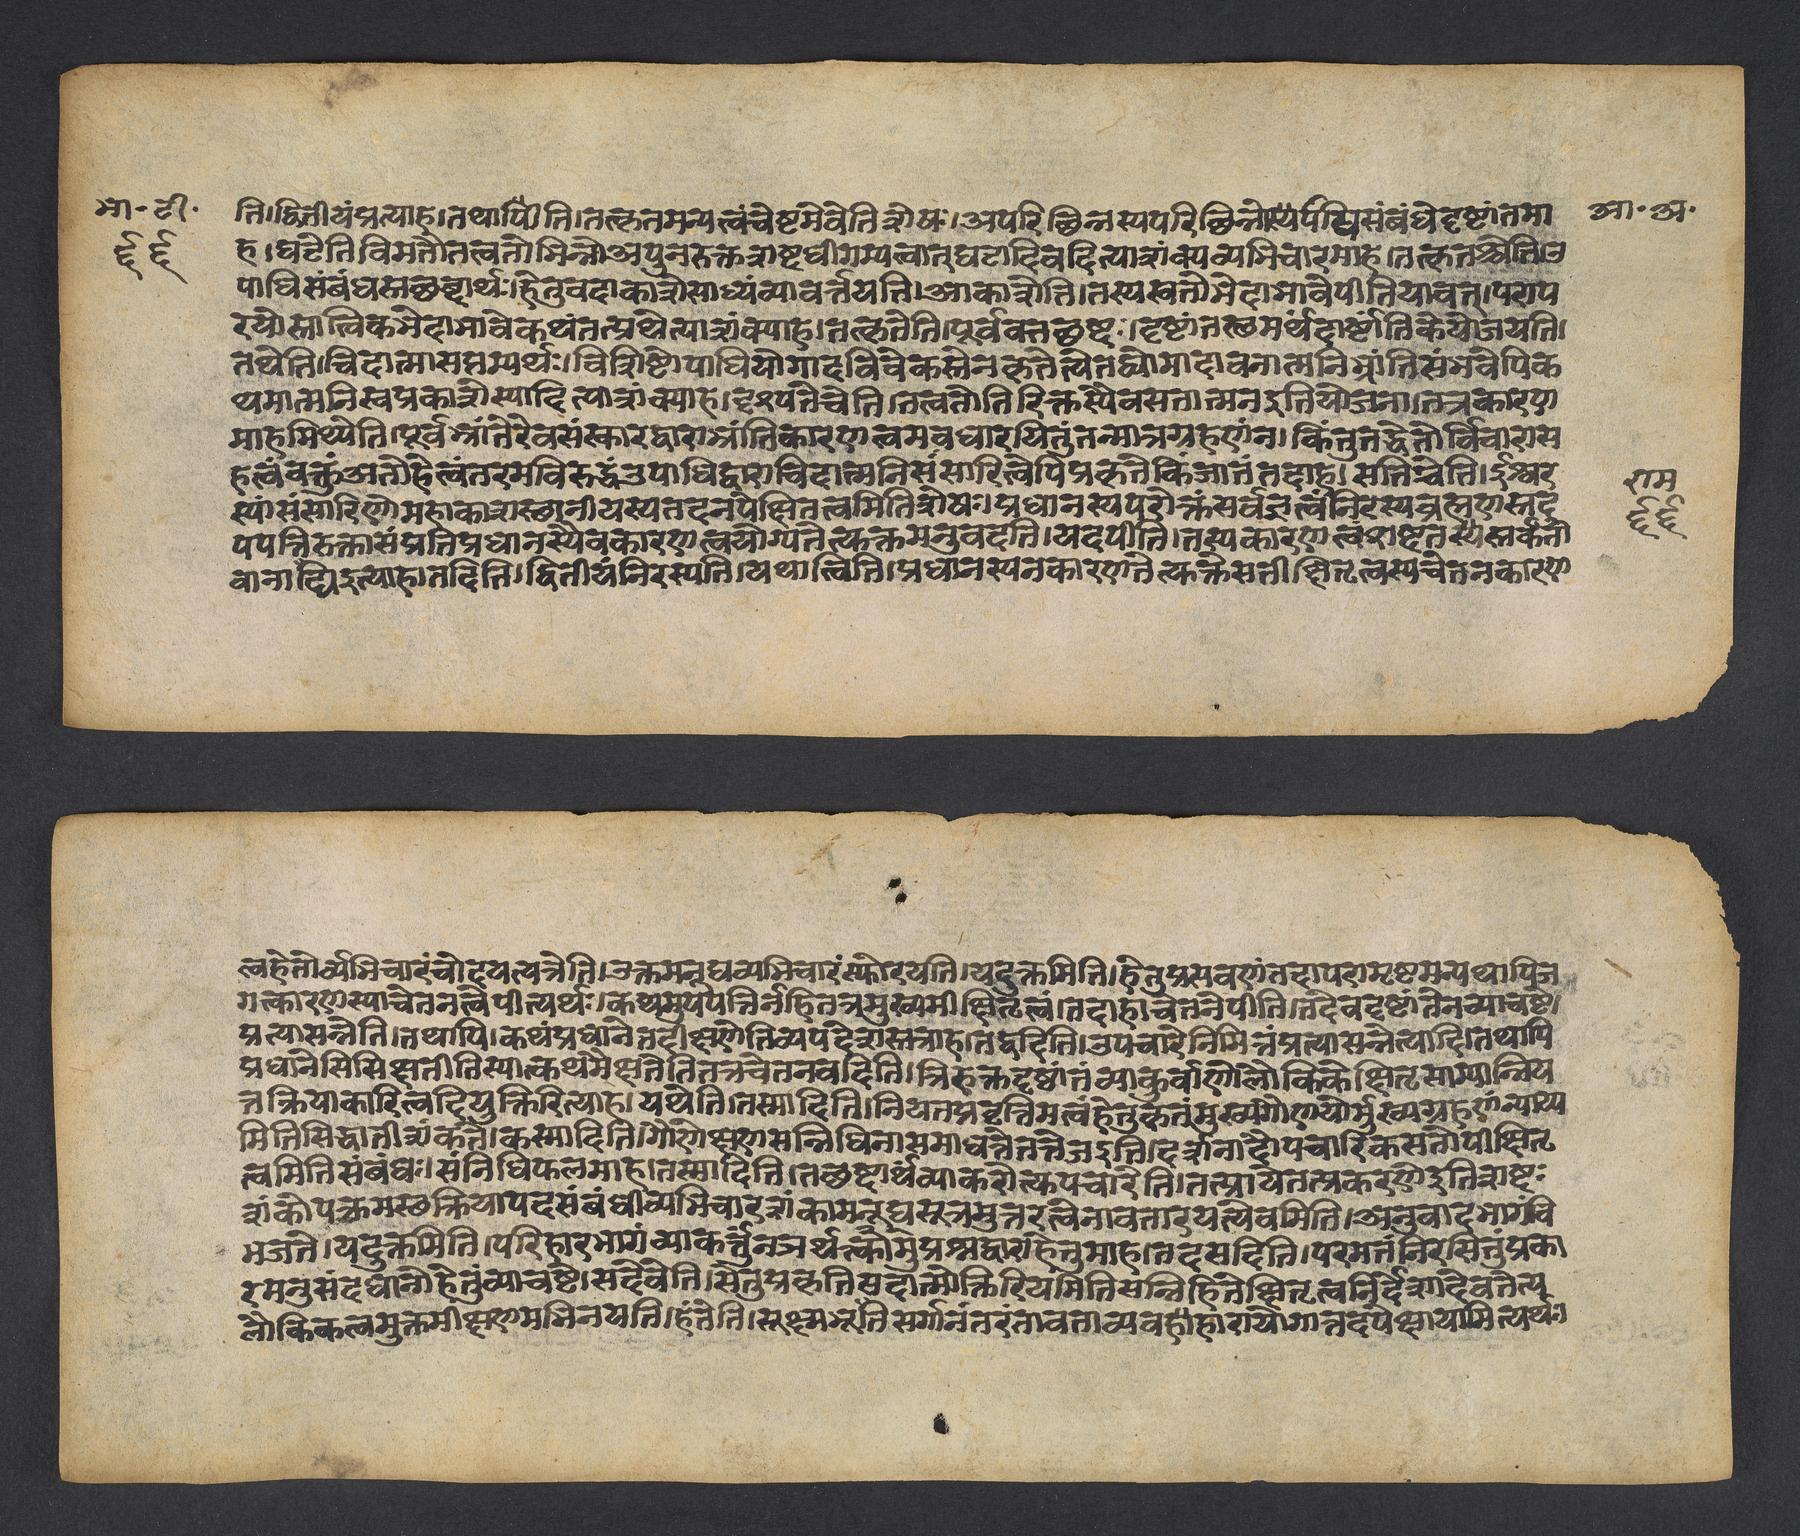 भा॰ टी॰
६६
आ॰ अ॰
ति।द्वितीयंप्रत्याह।तथापीति।तत्कृतमन्यत्वंचेष्टमेवेतिशेषः।अपरिच्छिन्नस्यपरिच्छिन्नोपाधिसंबंधेदृष्टांतमा
ह।घटेति।विमतौतत्वतोभिन्नौअपुनरुक्तशब्दधीगम्यत्वात्घटादिवदित्याशंक्यव्यभिचारमाह।तत्कृतश्चेति।उ
पाधिसंबंधस्तच्छब्दार्थः।हेतुवदाकाशेसाध्यंव्यावर्त्तयति।आकाशेति।तस्यस्वतोभेदाभावेपीतियावत्।पराप
रयोस्तात्त्विकभेदाभावेकथंतत्प्रथेत्याशंक्याह।तत्कृतेति।पूर्ववत्तच्छब्दः।दृष्टांतस्थमर्थंदार्ष्टांतिकेयोजयति।
तथेति।चिदात्मासप्तम्यर्थः।विशिष्टोपाधियोगादविवेकस्तेनकृतेत्येतद्व्योमादावनात्मनिभ्रांतिसंभवेपिक
थमात्मनिस्वप्रकाशेस्यादित्याशंक्याह।दृश्यतेचेति।तत्वतोतिरिक्तस्यैवसतआत्मनइतियोजना।तत्रकारण
माहमिथ्येति।पूर्वभ्रांतेरेवसंस्कारद्वाराभ्रांतिकारणत्वमवधारयितुंतन्मात्रग्रहणंन।किंतुतद्धेतोर्विचारास
हत्वंवक्तुंअतोहेत्वंतरमविरुद्धंउपाधिद्वाराचिदात्मनिसंसारित्वेपिप्रकृतेकिंजातंतदाह।सतिचेति।ईश्वर
स्यासंसारिणोमहाकाशस्थानीयस्यतदनपेक्षितत्वमितिशेषः।प्रधानस्यपरोक्तंसर्वज्ञत्वंनिरस्यब्रह्मणस्तदु
पपत्तिरुक्तासंप्रतिप्रधानस्यैवकारणत्वयोग्यतेत्युक्तमनुवदति।यदपीति।तस्यकारणत्वंशब्दतस्तर्कतो
वानाद्यइत्याह।तदिति।द्वितीयंनिरस्यति।यथात्विति।प्रधानस्यनकारणतेत्युक्तेसतीक्षितृत्वस्यचेतनकारण
राम
६६
त्वहेतोर्व्यभिचारंचोदयत्यत्रेति।उक्तमनूद्यव्यभिचारंस्फोरयति।यदुक्तमिति।हेतुप्रसवणंतदापरामृष्टमन्यथापिज
गत्कारणस्याचेतनत्वेपीत्यर्थः।कथमुपपत्तिर्नहितत्रमुख्यमीक्षितृत्वं।तदाह।चेतनेपीति।तदेवदृष्टांतेनव्याचष्टे।
प्रत्यासन्नेति।तथापि।कथंप्रधानेतदीक्षणेतिव्यपदेशस्तत्राह।तद्वदिति।उपचारेनिमित्तंप्रत्यासन्नेत्यादि।तथापि
प्रधानेसिसिक्षतीतिस्यात्कथमैक्षतेतितत्रचेतनवदिति।त्रिरुक्तदृष्टांतंव्याकुर्वाणोलौकिकेक्षितृसाम्यान्निय
तक्रियाकारित्वद्वियुक्तिरित्याह।यथेति।तस्मादिति।नियतप्रवृत्तिमत्वंहेतूकृतंमुख्यगौणयोर्मुख्यग्रहणंन्याय्य
मितिसिद्धांतीशंकते।कस्मादिति।गौणेक्षणसन्निधिनासमाधत्तेतत्तेजइति।दर्शनादौपचारिकसतोपीक्षितृ
त्वमितिसंबंधः।संनिधिफलमाह।तस्मादिति।तच्छब्दार्थंव्याकरोत्युपचारेति।तत्प्रायेतत्प्रकरणेइतिशब्दः
शंकोपक्रमस्थक्रियापदसंबंधीव्यभिचारशंकामनूद्यसूत्रमुत्तरत्वेनावतारयत्येवमिति।अनुवादभागंवि
भजते।यदुक्तमिति।परिहारभागंव्याकर्त्तुंनञर्थमुक्त्वाप्रश्नद्वाराहेतुमाह।तदसदिति।परमतंनिरसितुंप्रका
रमनुसंदधानोहेतुंव्याचष्टे।सदेवेति।सेतुप्रकृतिसदात्मोक्तिरियमितिसन्निहितेक्षितृत्वनिर्देशादेवतेत्यु
लौकिकत्वमुक्तमीक्षणमभिनयति।हंतेति।सूक्ष्मभूतिसर्गानंतरंतावताव्यवहाराहायोगात्तदपेक्षायामित्यर्थः।